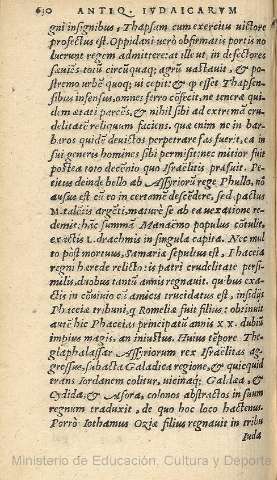 630 ANTIQ. IVDAICARVM
gni insignibus, Thapsam cum exercitu victore
profectus est. Oppidani verò obfirmatis portis no
luerunt regem admittere: at ille ut in defectores
sæuiẽs totũ circũquaq; agrũ vastauit, & po-
stremo urbẽ quoq; ui cepit: & qp esset Thapsen-
sibus infensus, omnes ferro cõfecit, ne tenerae qui-
dem ætati parcẽs, & nihil sibi ad extremã cru-
delitatẽ reliquum faciens. quæ enim ne in bar-
baros quidẽ deuictos perpetrare fas fuerat, ea in
sui generis homines sibi permisit: nec mitior fuit
postea toto decẽnio quo Israëlitis præfuit. Pe-
titus deinde bello ab Assyriorũ rege Phullo, nõ
ausus est cũ eo in certamẽ descẽdere, sed pactus
M. talẽtis argẽti, maturè se ab ea uexatione re-
demit: hãc summã Manaemo populus cõtulit,
exactis L. drachmis in singula capita. Nec mul
to pòst mortuus, Samaria sepultus est, Phaceia
regni hærede relicto: is patri crudelitate persi-
milis, duobus tantũ annis regnauit. quibus exa-
ctis in cõuiuio cũ amicis trucidatus est, insidiãte
Phaceia tribuni, q Romeliæ fuit filius: obtinuit
autẽ hic Phaceias principatũ annis XX. dubiũ
impius magis, an iniustus. Huius tẽpore The-
glaphalassar Assyriorum rex Israëlitas ag-
gressus, subacta Galadica regione, & quicquid
trans Iordanem colitur, uicinaq; Galilæa, &
Cydida, & Asora, colonos abstractos in suum
regnum traduxit, de quo hoc loco hactenus.
Porrò Iothamus Oziæ filius regnauit in tribu
Iuda
Ministerio de Educación, Cultura y Deporte